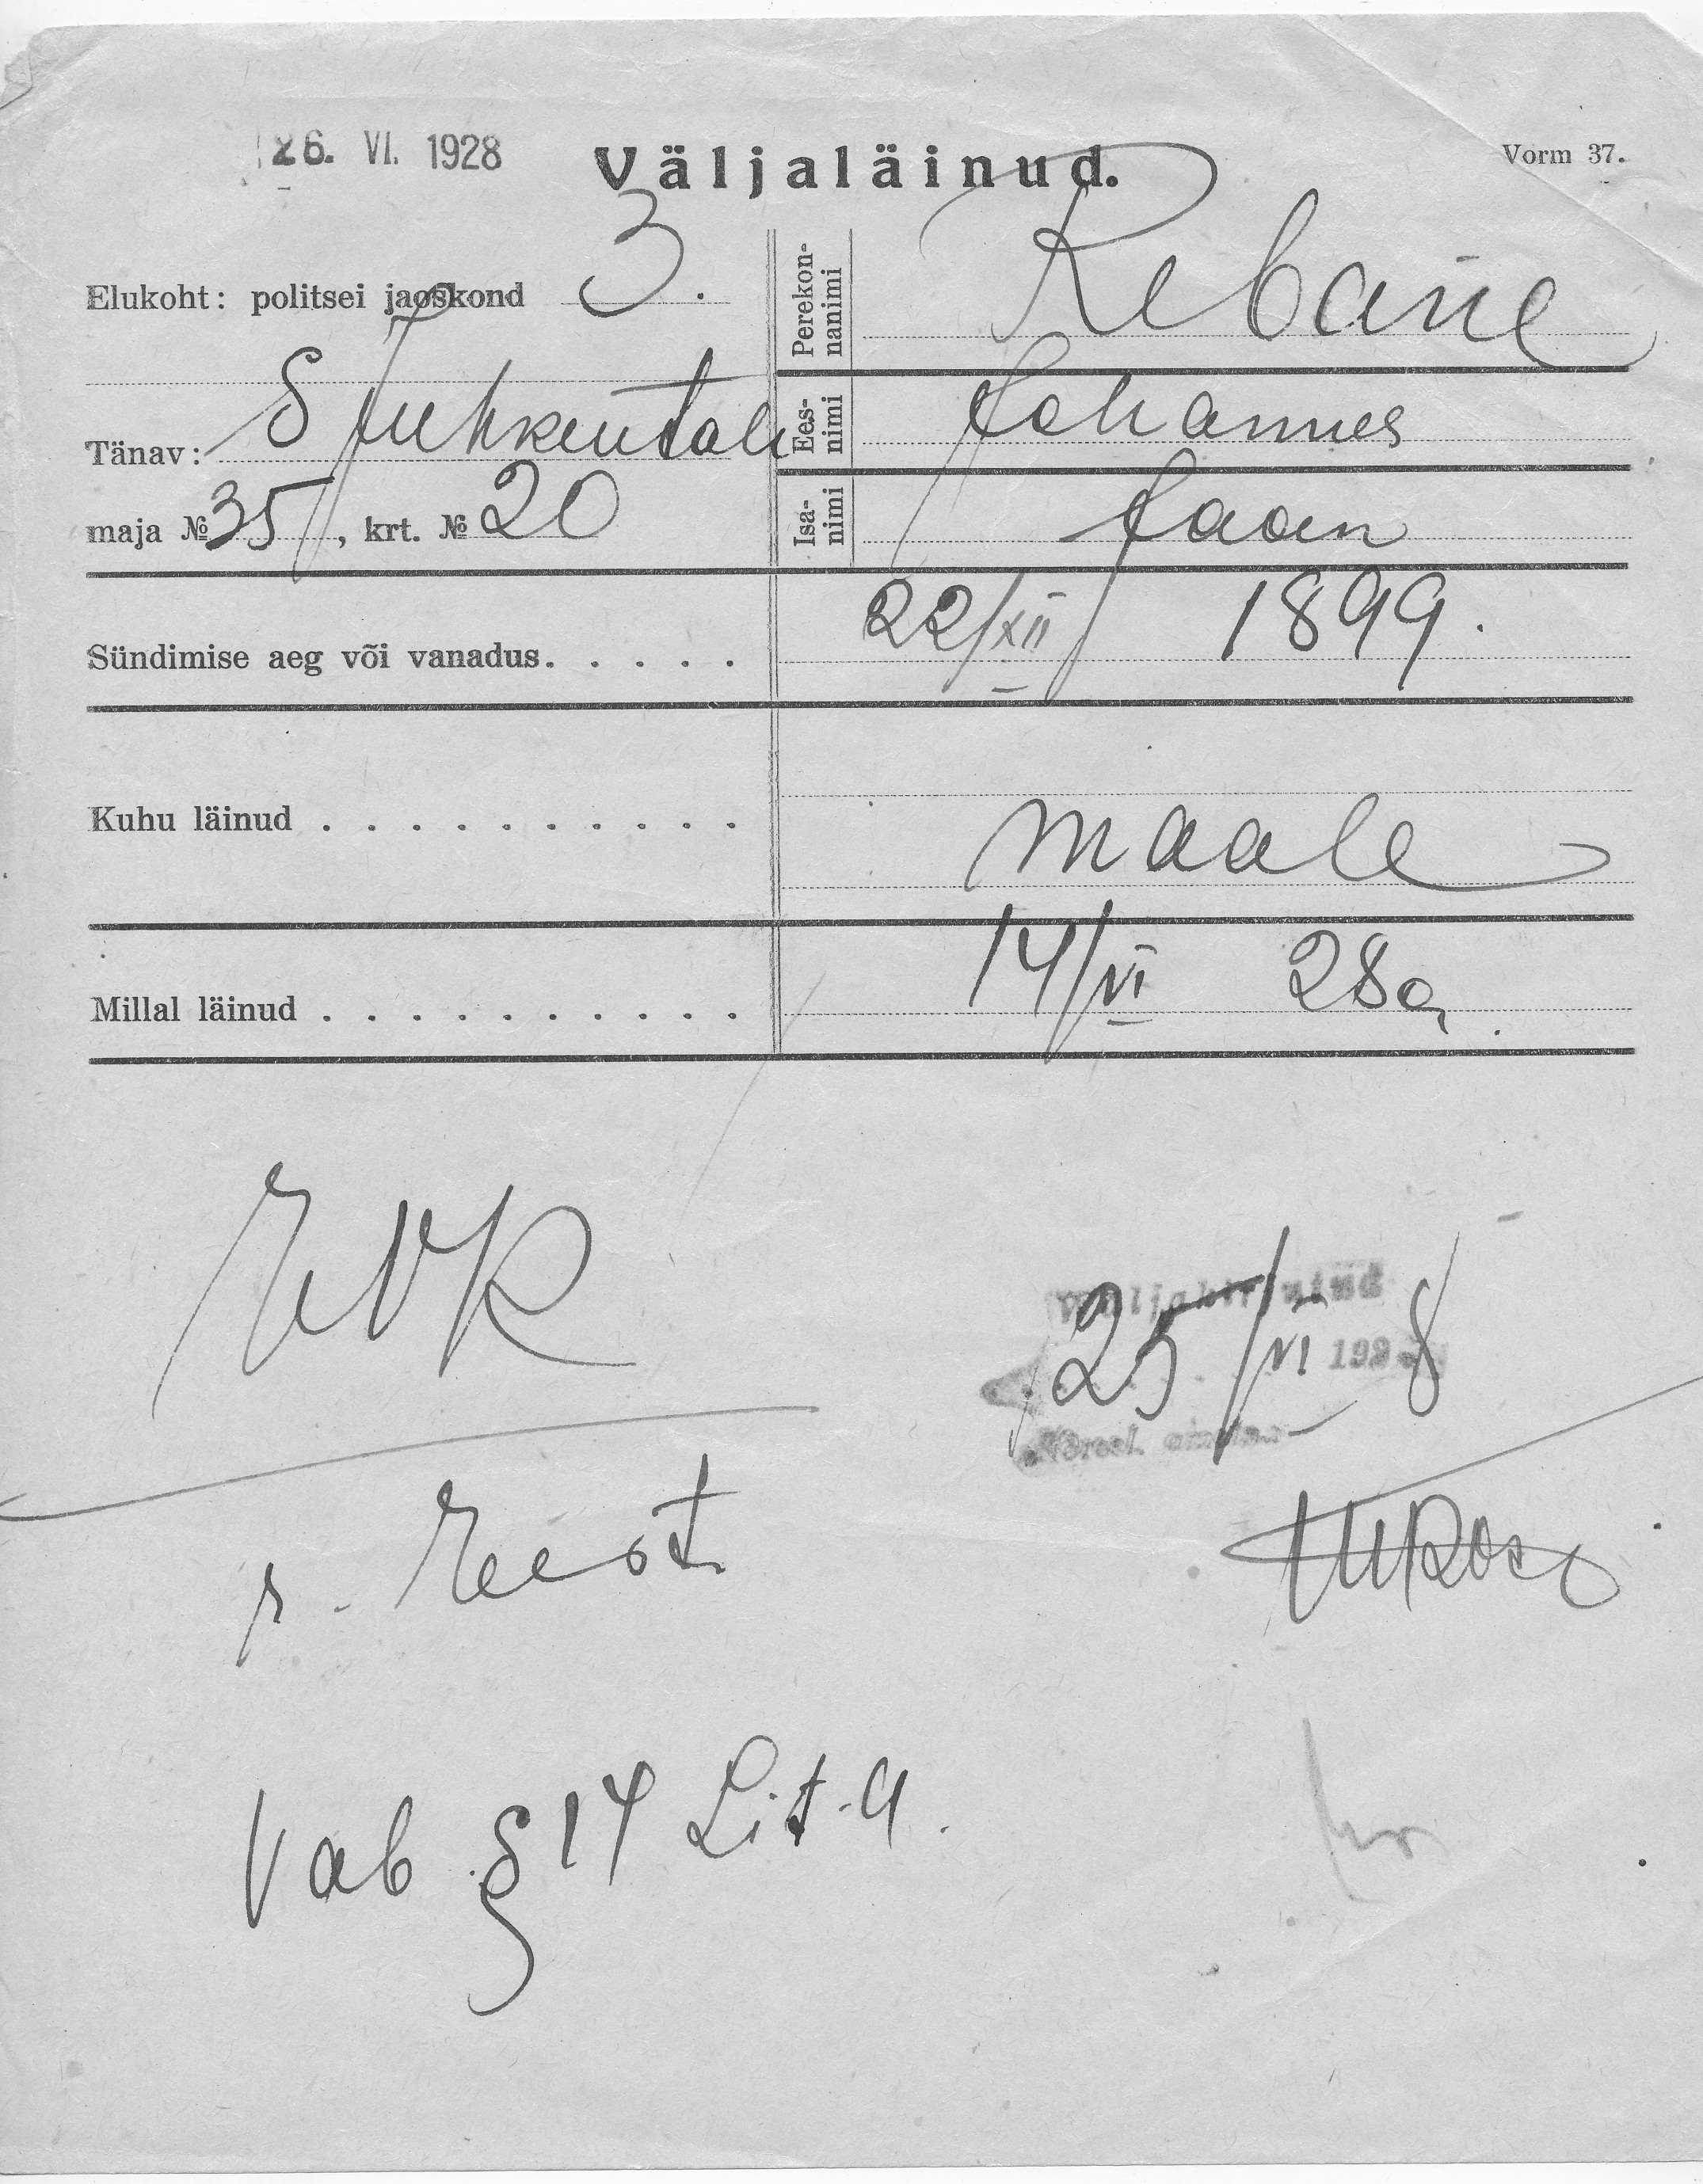 26. VI. 1928
Väljaläinud.
Vorm 37.
Elukoht: politsei jaoskond 3.
Tänav: S Juhkentali
maja № 35, krt. № 20
Perekonnanimi Rebane
Eesnimi Johannes
Isanimi Jaan
Sündimise aeg või vanadus. . . . . 22/XII 1899.
Kuhu läinud . . . . . . . . . . maale
Millal läinud . . . . . . . . . . 14/VI 28a.
EVK
Väljakirjutud
25/VI 192 8
r. Eest
Vab § 14 Lit. a.